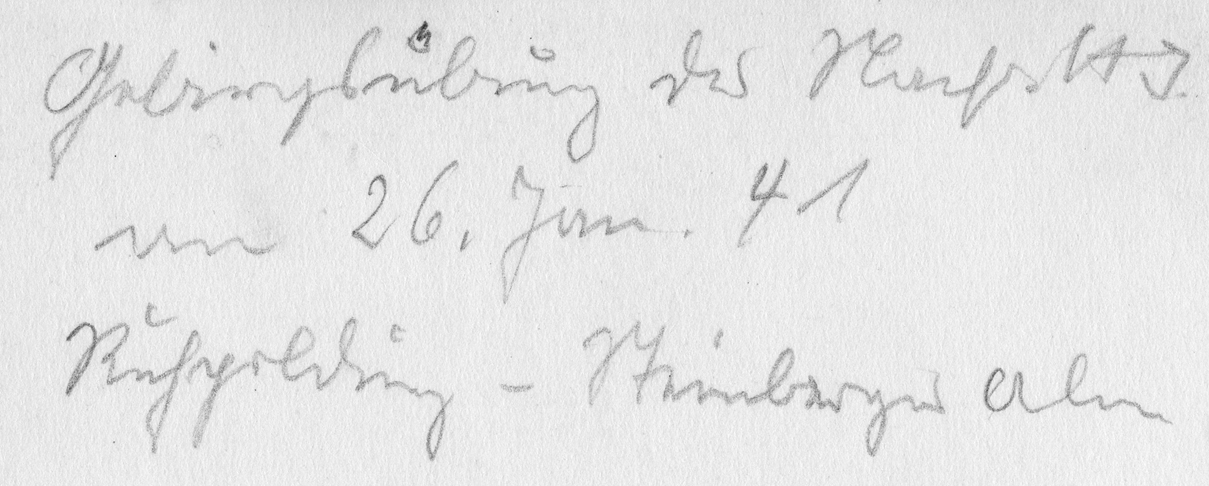 Gebirgsübung der Nachr.
am 26. Jan. 41
Ruhpolding - Steinberger Alm